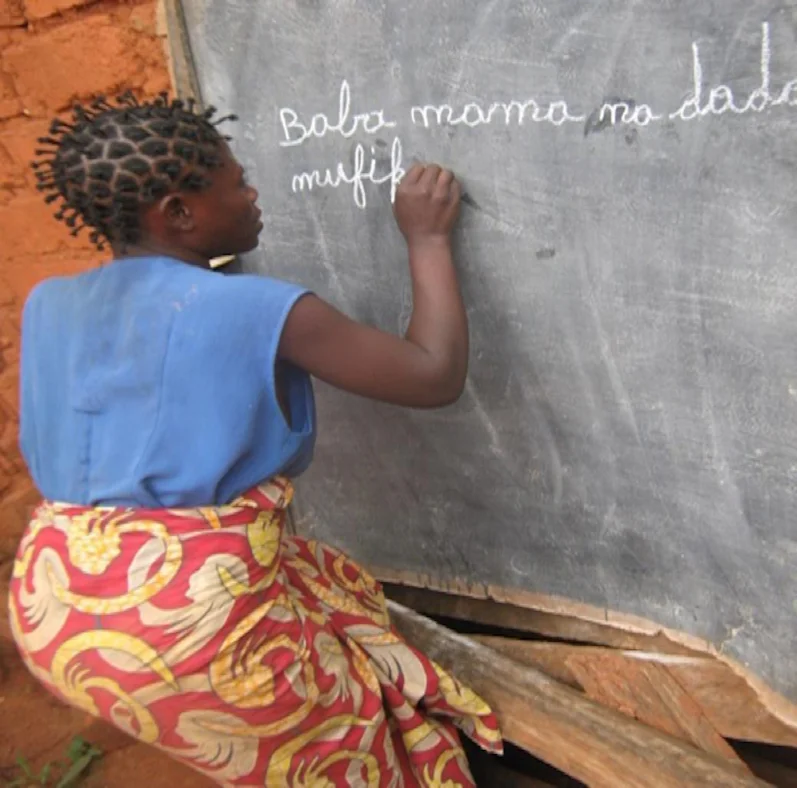 Baba mama na dada
mufik